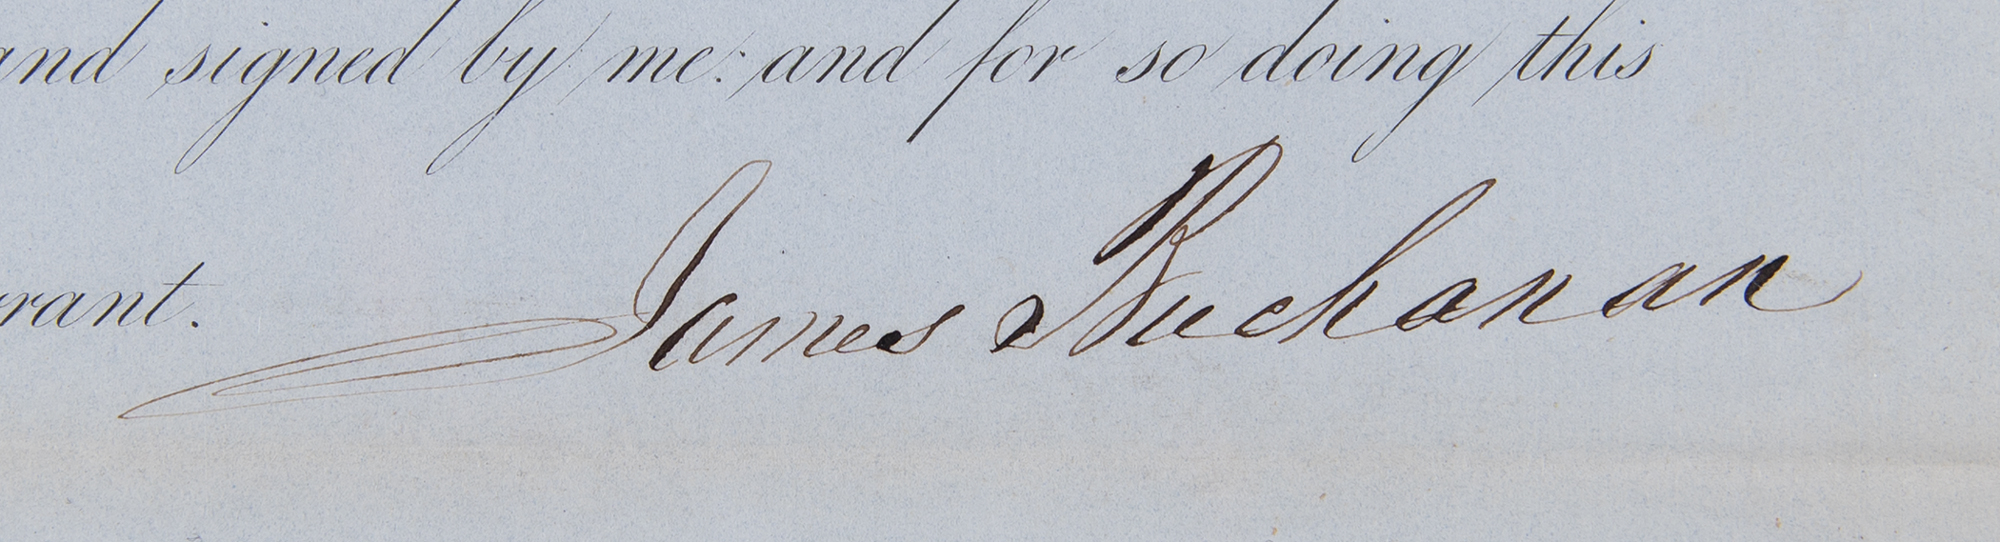 and signed by me: and for so doing this
rant.
James Buchanan